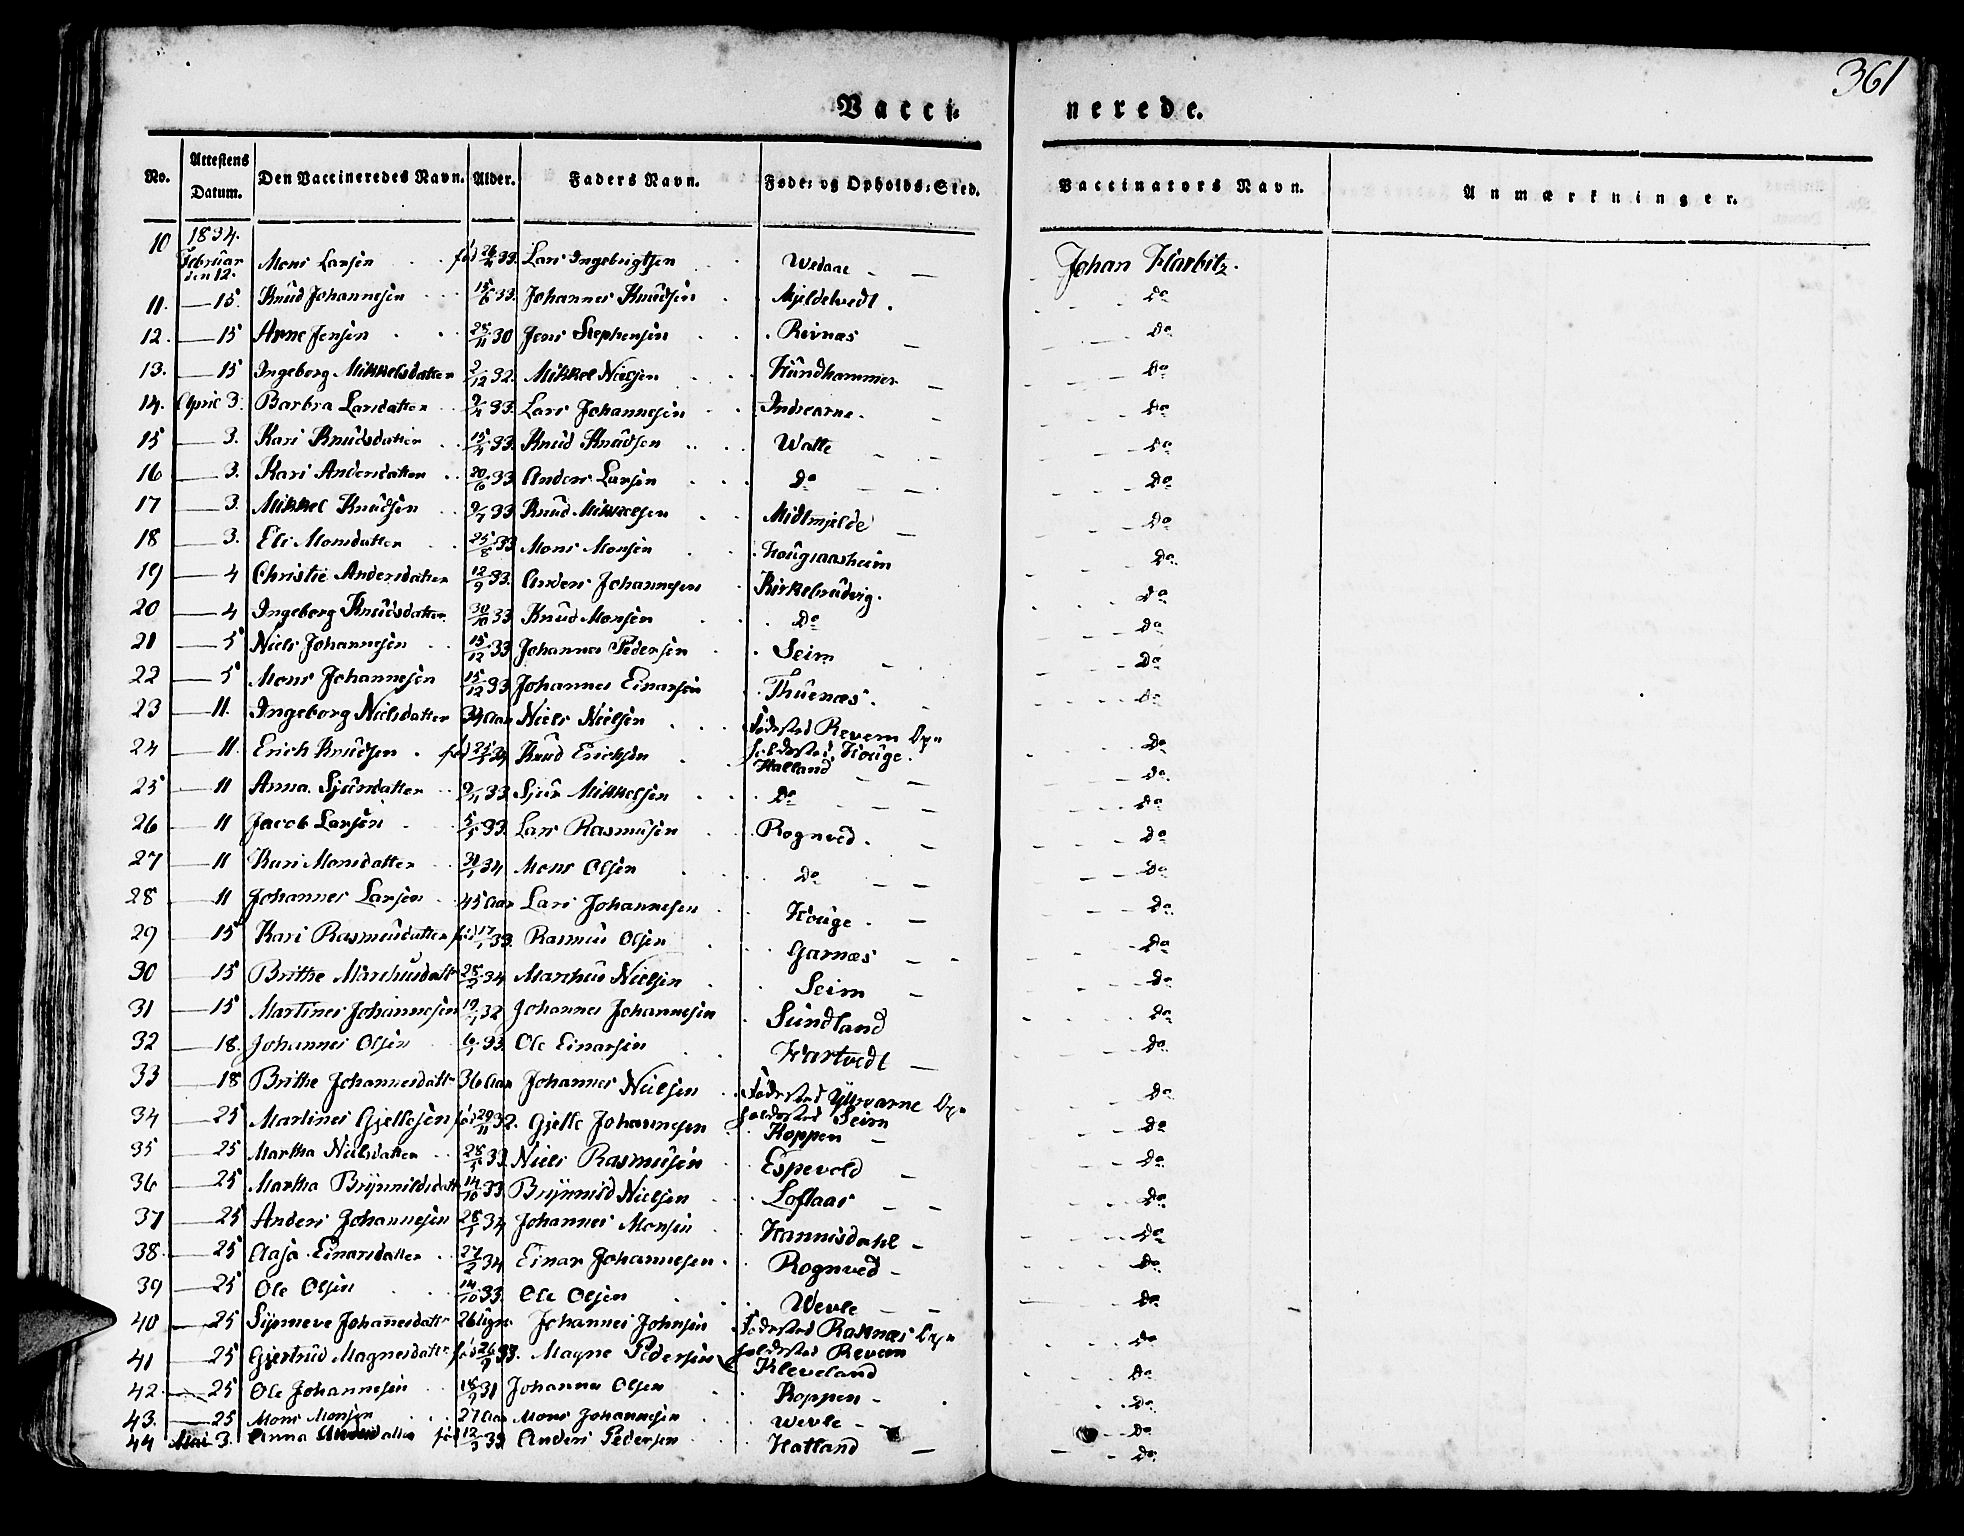 361
Vacci= nerede.
No. Attestens Datum. Den Vaccineredes Navn. Alder. Faders Navn. Føde= og Opholds=Sted. Vaccinators Navn. Anmærkninger.
1834.
10 Februar den 12. Mons Larsen fød 33. Lars Ingebrigtsen Wedaae Johan Harbitz.
11. — 15. Knud Johannesen 15/6 33. Johannes Knudsen Mjeldetvedt. Do
12. — 15 Arne Jensen 25/11 30 Jens Stephensen Revnæs Do
13. — 15 Ingeborg Mikkelsdatter 2/12 32. Mikkel Nielsen Hundhammer Do
14. April 3. Barbra Larsdatter 33. Lars Johannesen Indrearne. Do
15 — 3. Kari Knudsdatter 33. Knud Knudsen Watle Do
16 — 3. Kari Andersdatter 20/6 33 Anders Larsen do Do
17 — 3. Mikkel Knudsen 9/7 33 Knud Mikkelsen Midtmjelde Do
18 — 3. Eli Monsdatter 25/8 33 Mons Monsen Do
19 — 4 Christie Andersdatter 12/9 33. Anders Johannesen Kirkebrudvig. Do
20 — 4 Ingeborg Knudsdatter 30/10 33 Knud Monsen Do Do
21 — 5 Niels Johannesen 15/12 33 Johannes Pedersen Seim Do
22 — 5 Mons Johannesen 15/12 33 Johannes Einarsen Thuenæs. Do
23 — 11. Ingeborg Nielsdatter 34 Aar Niels Nielsen Fødested Revem Op=
24 — 11. Erich Knudsen fød 34 Knud Erichsen holdested Houge. Do
Hatland
25 — 11 Anna Sjursdatter 33. Sjur Mikkelsen Do Do
26 — 11 Jacob Larsen 33. Lars Rasmusen Rognved. Do
27 — 11 Kari Monsdatter 34 Mons Olsen Do Do
28 — 11 Johannes Larsen 45 Aar Lars Johannesen Houge. Do
29 — 15 Kari Rasmusdatter fød 33. Rasmus Olsen Garnæs Do
30 — 15 Brithe Marchusdattr 28/2 34 Marchus Nielsen Seim Do
31 — 15 Martines Johannesen 32 Johannes Johannesen Sundland Do
32 — 18. Johannes Olsen 33. Ole Einarsen Hartvedt Do
33 — 18 Brithe Johannesdattr 36 Aar Johannes Nielsen Fødested Yttrearne Op= Do
34 — 25 Martines Gjellesen fød 29/11 32. Gjelle Johannesen holdested Seim Do
Koppen
35 — 25 Martha Nielsdatter 28/5 33 Niels Rasmusen Espevold Do
36 — 25 Martha Brynnildsdattr 14/10 33 Brynnild Nielsen Loftaas Do
37 — 25 Anders Johannesen 34 Johannes Monsen Hannisdahl Do
38. — 25 Aasa Einarsdatter 27/2 34 Einar Johannesen Rognved Do
39 — 25 Ole Olsen 14/10 33. Ole Olsen Wevle Do
40 — 25 Synneve Johannesdattr 26 Johannes Johnsen Fødested Raknæs Op= Do
41 — 25 Gjertrud Magnesdatter fød 33. Magne Pedersen holdested Revem Do
Kleveland
42. — 25 Ole Johannesen 18/9 31 Johannes Olsen Koppen Do
43. — 25 Mons Monsen 27 Aar Mons Johannesen Wevle Do
44 Mai 3. Anna Andersdatter fød 33 Anders Pedersen Hatland Do